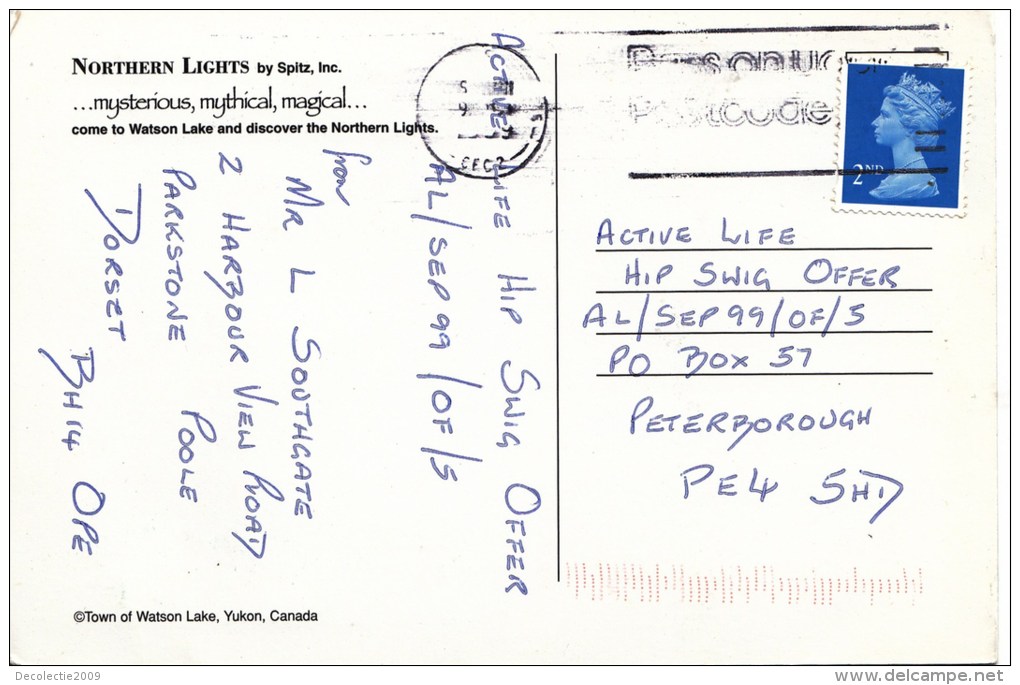 NORTHERN LIGHTS by Spitz, Inc.
...mysterious, mythical, magical...
come to Watson Lake and discover the Northern Lights.
ACTIVE LIFE HIP SWIG OFFER
AL/SEP99/OF/S
from
MR L SOUTHGATE
2 HARBOUR VIEW ROAD
PARKSTONE POOLE
DORSET
BH14 OPE
©Town of Watson Lake, Yukon, Canada
2ND
ACTIVE LIFE
HIP SWIG OFFER
AL/SEP99/OF/S
PO BOX 57
PETERBOROUGH
PE4 5HD
Decolectie2009
delcampe.net